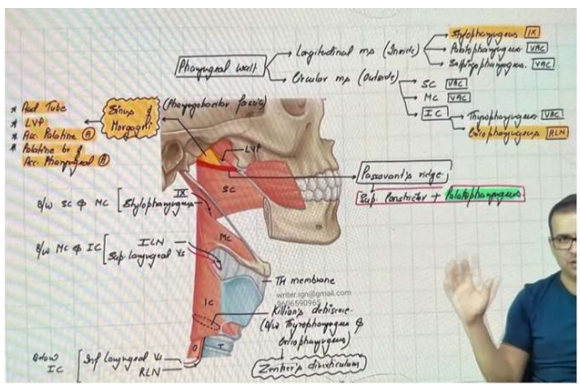 Pharyngeal wall
Longitudinal ms (Inside)
Stylopharyngeus IX
Palatopharyngeus VAC
Salpingopharyngeus. VAC
Circular ms (Outside)
SC VAC
MC VAC
IC
Thyropharyngeus VAC
Cricopharyngeus RLN
* Aud Tube
* LVP
* Acc. Palatine (A)
* Palatine br of
Acc. Pharyngeal (A)
Sinus of
Morgagni
(Pharyngobasilar fascia)
LVP
SC
Passavant's ridge
Sup. Constrictor + Palatopharyngeus
b/w SC & MC
IX
Stylopharyngeus
MC
b/w MC & IC
ILN
Sup laryngeal Vs
TH membrane
writer.vgn@gmail.com
9606590965
IC
Killian's dehiscence.
(b/w Thyropharyngeus &
Cricopharyngeus)
Zenker's diverticulum
Below
IC
Inf laryngeal Vs
RLN
O
T